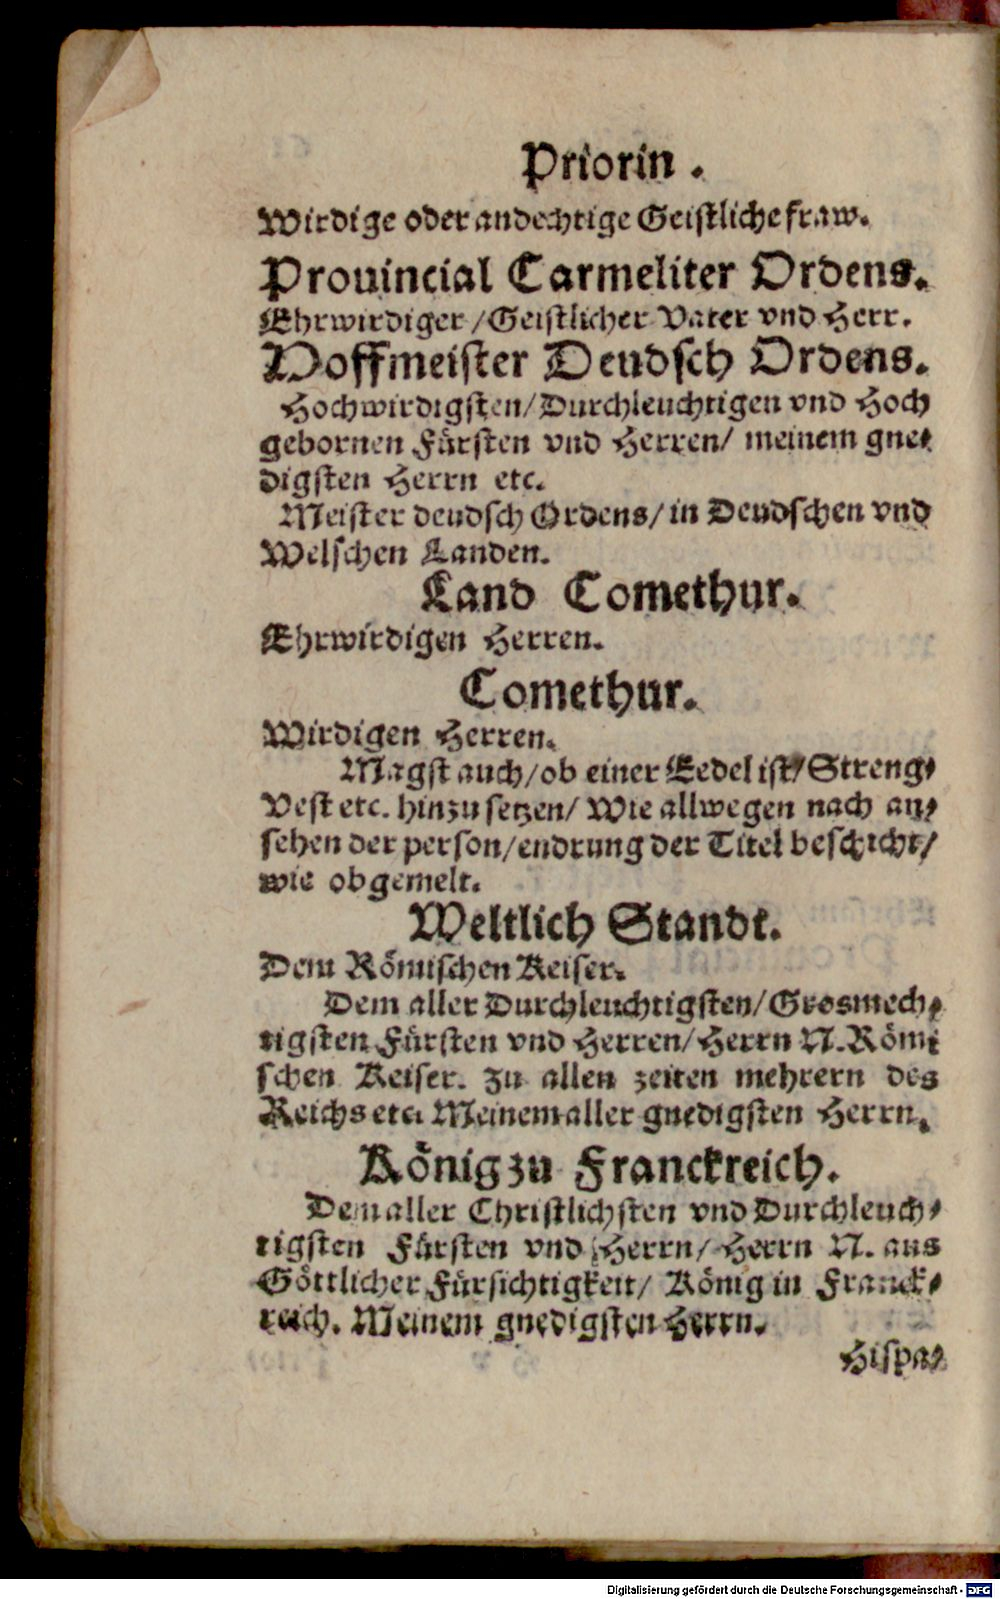 Priorin.
Wirdige oder andechtige Geistliche fraw.
Prouincial Carmeliter Ordens.
Ehrwirdiger/Geistlicher Vater vnd Herr.
Hoffmeister Deudsch Ordens.
Hochwirdigsten/Durchleuchtigen vnd Hoch
gebornen Fürsten vnd Herren/ meinem gne⸗
digsten Herrn etc.
Meister deudsch Ordens/in Deudschen vnd
Welschen Landen.
Land Comethur.
Ehrwirdigen Herren.
Comethur.
Wirdigen Herren.
Magst auch/ob einer Eedel ist/Streng⸗
Vest etc. hinzu setzen/ Wie allwegen nach an⸗
sehen der person/endrung der Titel beschicht/
wie obgemelt.
Weltlich Standt.
Dem Römischen Keiser.
Dem aller Durchleuchtigsten/Grosmech⸗
tigsten Fürsten vnd Herren/Herrn N. Römi
schen Keiser. zu allen zeiten mehrern des
Reichs etc. Meinem aller gnedigsten Herrn.
König zu Franckreich.
Dem aller Christlichsten vnd Durchleuch⸗
tigsten Fürsten vnd Herrn/ Herrn N. aus
Göttlicher Fürsichtigkeit/ König in Franck⸗
reich. Meinem gnedigsten Herrn.
Hispa⸗
Digitalisierung gefördert durch die Deutsche Forschungsgemeinschaft - DFG